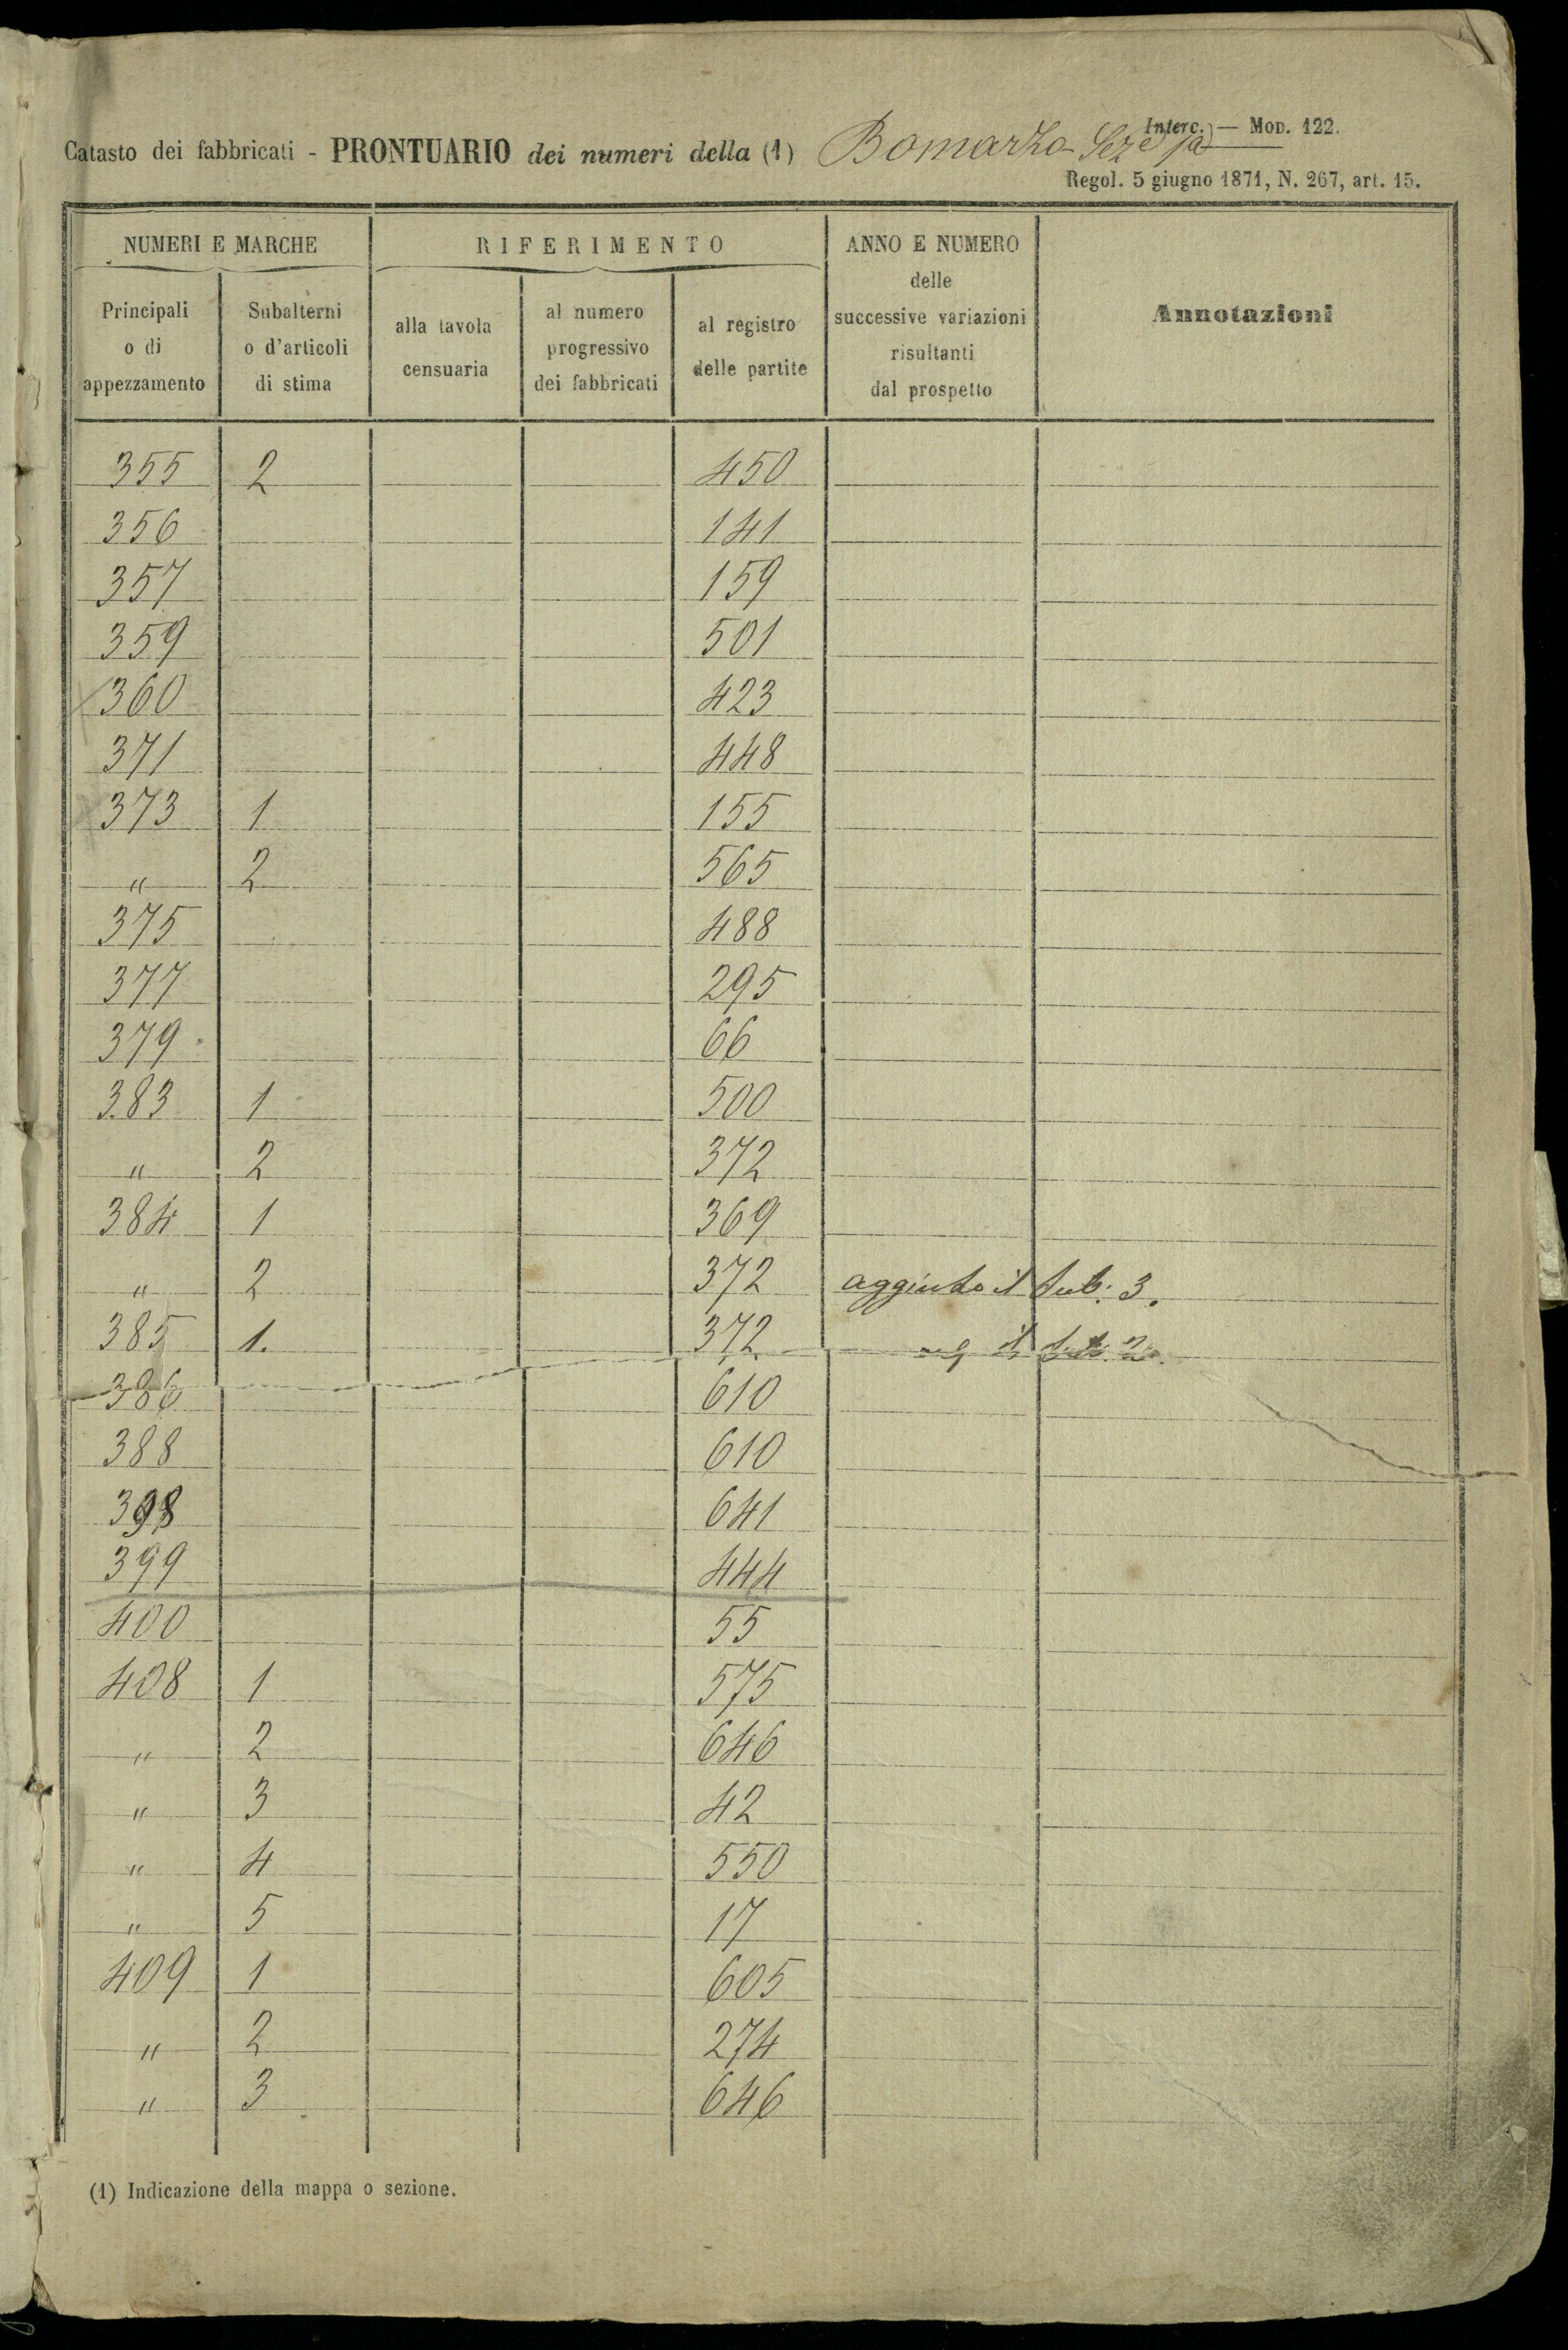 Interc. — Mod. 122.
Catasto dei fabbricati - PRONTUARIO dei numeri della (1) Bomarzo Sez.e
Regol. 5 giugno 1871, N. 267, art. 15.
NUMERI E MARCHE RIFERIMENTO ANNO E NUMERO delle successive variazioni risultanti dal prospetto Annotazioni
Principali o di appezzamento Subalterni o d'articoli di stima alla tavola censuaria al numero progressivo dei fabbricati al registro delle partite
355 2 450
356 141
357 159
359 501
360 423
371 448
373 1 155
" 2 565
375 488
377 295
379 66
383 1 500
" 2 372
384 1 369
" 2 372 aggiunto il sub: 3.
385 1. 372 il sub. 2.
386 610
388 610
398 641
399 444
400 55
408 1 575
" 2 646
" 3 42
" 4 550
" 5 17
409 1 605
" 2 274
" 3 646
(1) Indicazione della mappa o sezione.